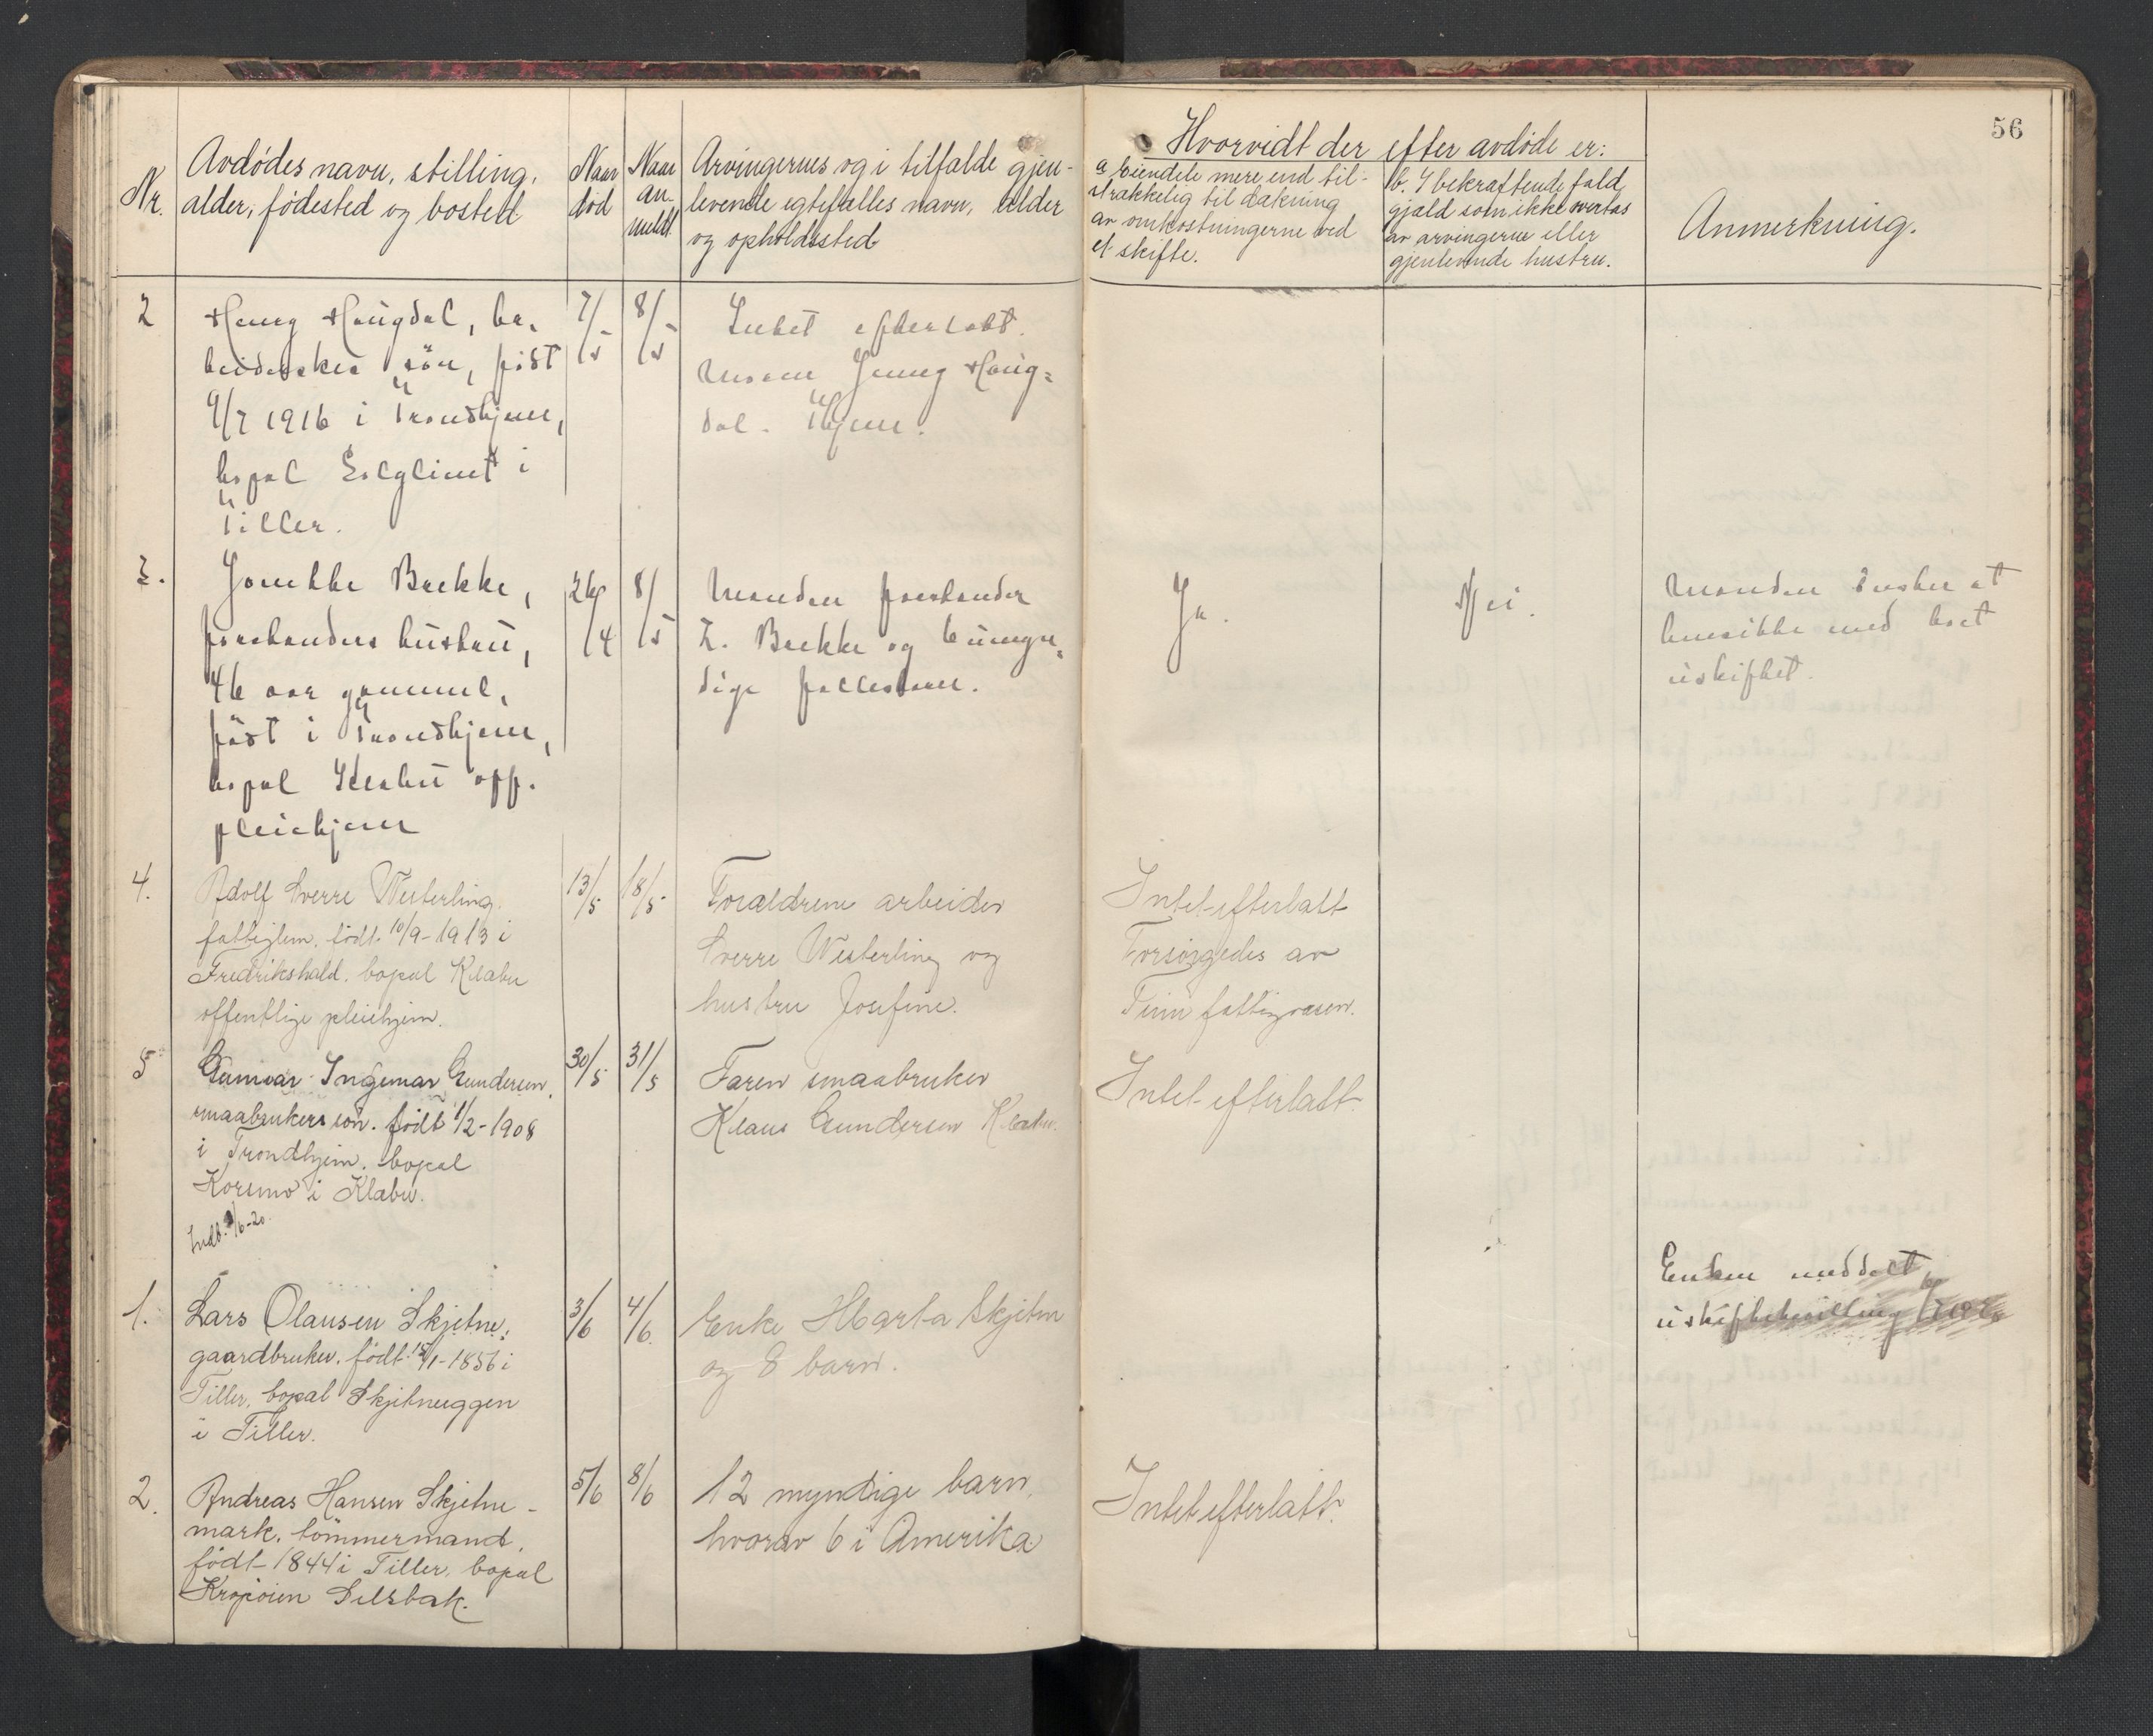 56
Nr.
Avdödes navn, stilling,
alder, födested og bosted
Naar
död
Naar
an-
meldt
Arvingernes og i tilfælde gjen-
levende egtefælles navn, alder
og opholdssted
Hvorvidt der efter avdöde er:
a. eiendele mere end til-
strækkelig til dækning
av omkostningerne ved
et skifte.
b. I bekræftende fald,
gjæld som ikke overtas
av arvingerne eller
gjenlevende hustru.
Anmerkning.
2
Haugdal, ar-
beiderskes sön, födt
9/7 1916 i Trondhjem,
bopæl i
Tiller.
7/5
8/5
Intet efterlatt.
Moren Jenny Haug=
dal. Thjem.
3.
Brekke,
forstanders hustru,
46 aar gammel,
födt i Trondhjem,
bopæl Klæbu off.
pleiehjem
26/4
8/5
Manden forstander
Brekke og 6 umyn=
dige fællesbarn.
Ja.
Nei.
Manden önsker at
hensidde med boet
uskiftet.
4.
Adolf Sverre Westerling.
fattiglem. födt 10/9-1913 i
Fredrikshald. bopæl Klæbu
offentlige pleiehjem.
13/5
18/5
Forældrene arbeider
Sverre Westerling og
hustru Josefine.
Intet efterlatt
Forsörgedes av
fattigvæsen.
5
Gunvar Ingemar Gundersen,
smaabrukers sön. födt 1/2-1908
i Trondhjem. bopæl
Korsmo i Klæbu.
30/5
31/5
Faren smaabruker
Klaus Gundersen Klæbu.
Intet efterlatt.
Indb. /6-20.
1.
Lars Olausen Skjetne,
gaardbruker. födt /1-1856 i
Tiller, bopæl Skjetneuggen
i Tiller.
3/6
4/6
Enke Marta Skjetne
og 8 barn.
Enken meddelt
uskiftebevilling
2.
Andreas Hansen Skjetne-
mark. tömmermand.
födt 1844 i Tiller, bopæl
Selsbak.
5/6
8/6
12 myndige barn,
hvorav 6 i Amerika
Intet efterlatt.